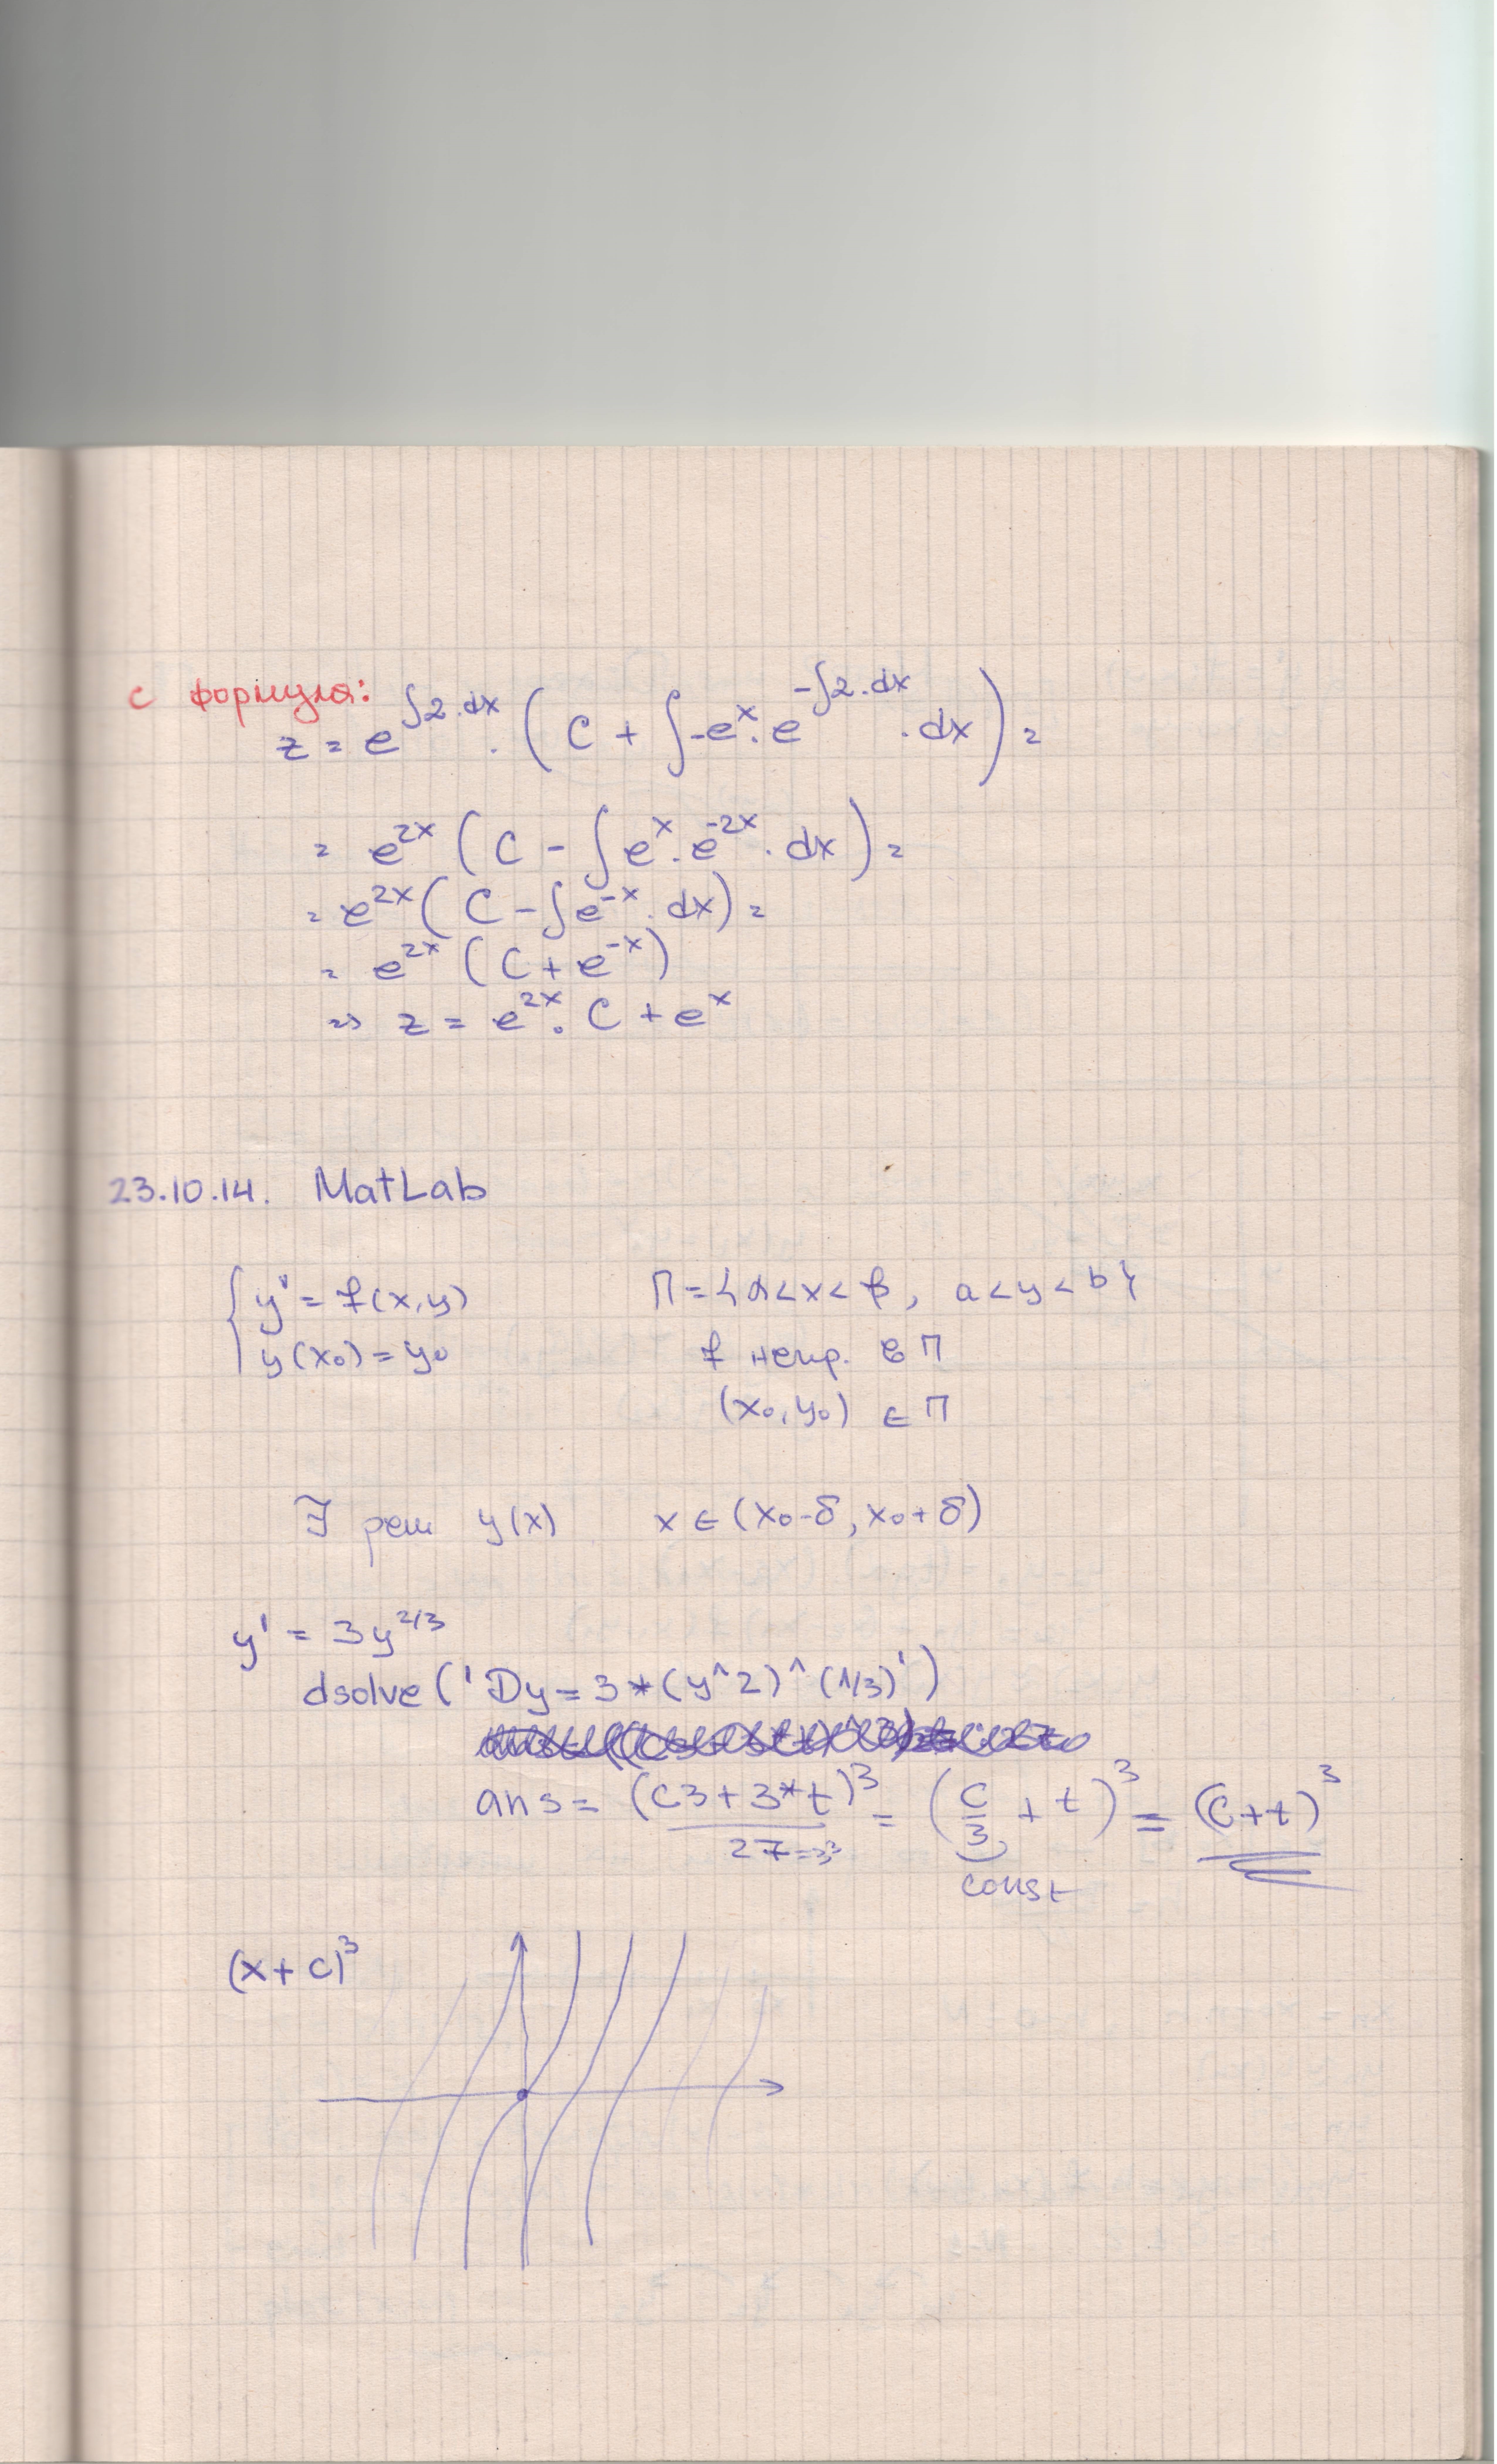 с формула:
z = e^∫2.dx . (C + ∫-e^x.e^-∫2.dx .dx) =
= e^2x (C - ∫e^x.e^-2x.dx) =
= e^2x (C - ∫e^-x.dx) =
= e^2x (C + e^-x)
=> z = e^2x.C + e^x
23.10.14. MatLab
{ y' = f(x,y) П = {α<x<β, a<y<b}
y(x₀) = y₀ f непр. в П
(x₀,y₀) ∈ П
∃ реш y(x) x ∈ (x₀-δ, x₀+δ)
y' = 3y^2/3
dsolve('Dy=3*(y^2)^(1/3)')
ans = (C3+3*t)^3 / 27=3^3 = (C/3 + t)^3 = (C+t)^3
const
(x+c)^3